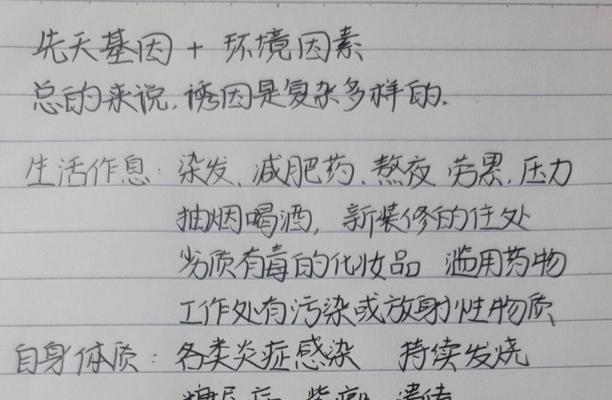 先天基因 + 环境因素
总的来说,诱因是复杂多样的.
生活作息: 染发、减肥药、熬夜 劳累、压力
抽烟喝酒, 新装修的住处
劣质有毒的化妆品 滥用药物
工作处有污染或放射性物质
自身体质: 各类炎症感染 持续发烧